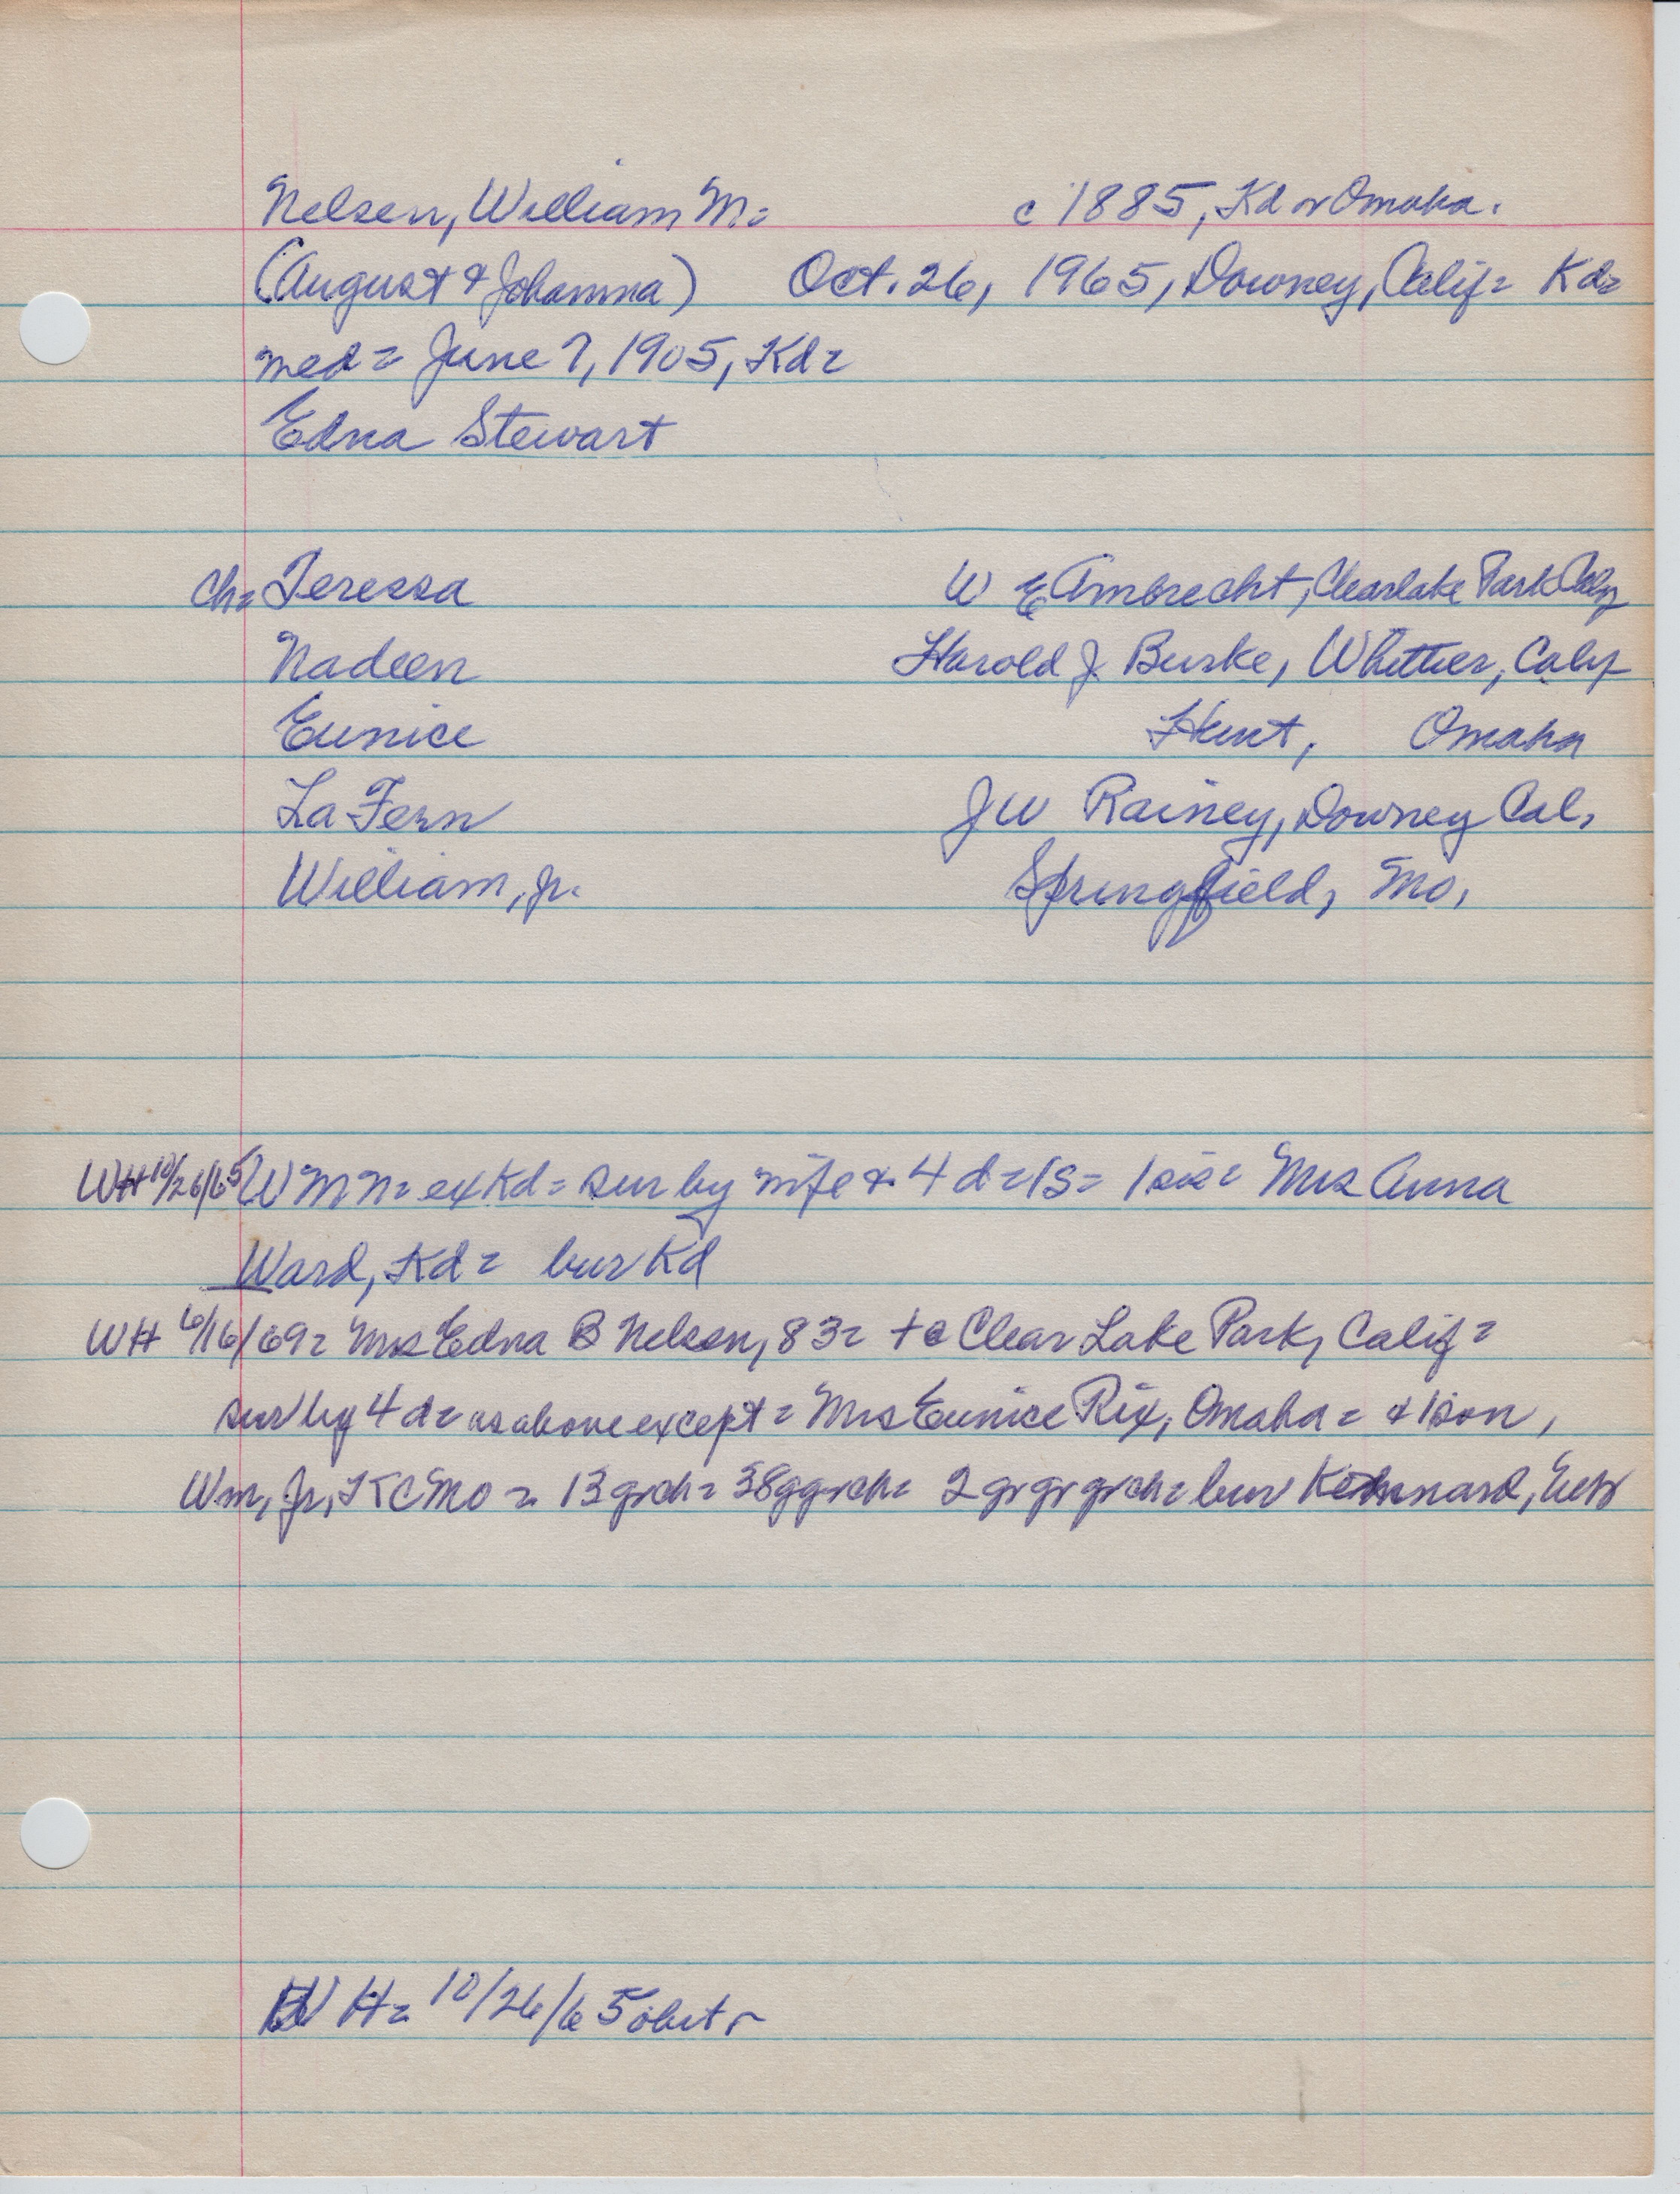 Nelsen, William M= c 1885, Kd or Omaha.
(August & Johanna) Oct. 26, 1965, Downey, Calif= Kd=
med= June 7, 1905, Kd=
Edna Stewart
ch= Teressa W E Ambrecht, Clearlake Park Calif
Nadeen Harold J. Burke, Whittier, Calif
Eunice Hunt, Omaha
La Fern J W Rainey, Downey Cal,
William, Jr. Springfield, Mo,
WH 10/26/65 W M N= ex Kd= sur by wife & 4 d= 1s= 1 sis= Mrs Anna
Ward, Kd= bur Kd
WH 6/16/69= Mrs Edna B Nelsen, 83= + @ Clear Lake Park, Calif=
sur by 4 d= as above except= Mrs Eunice Rix, Omaha= & 1 son,
Wm, Jr, K C Mo= 13 grch= 38 ggrch= 2 gr gr grch= bur Kennard, Neb
W H= 10/26/65 obit